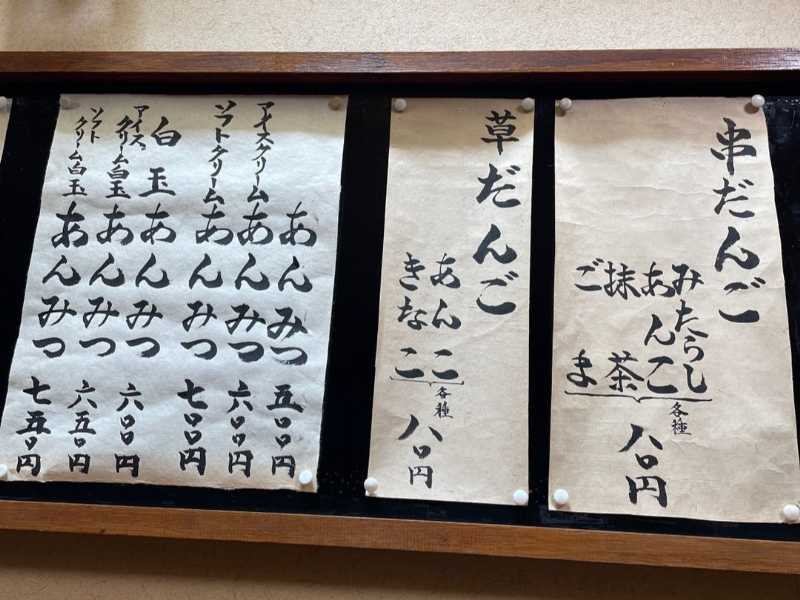 串だんご
みたらし
あんこ
抹茶
ごま
各種
八〇円
草だんご
あんこ
きなこ
各種
八〇円
あんみつ 五〇〇円
アイスクリームあんみつ 六〇〇円
ソフトクリームあんみつ 七〇〇円
白玉あんみつ 六〇〇円
アイスクリーム白玉あんみつ 六五〇円
ソフトクリーム白玉あんみつ 七五〇円